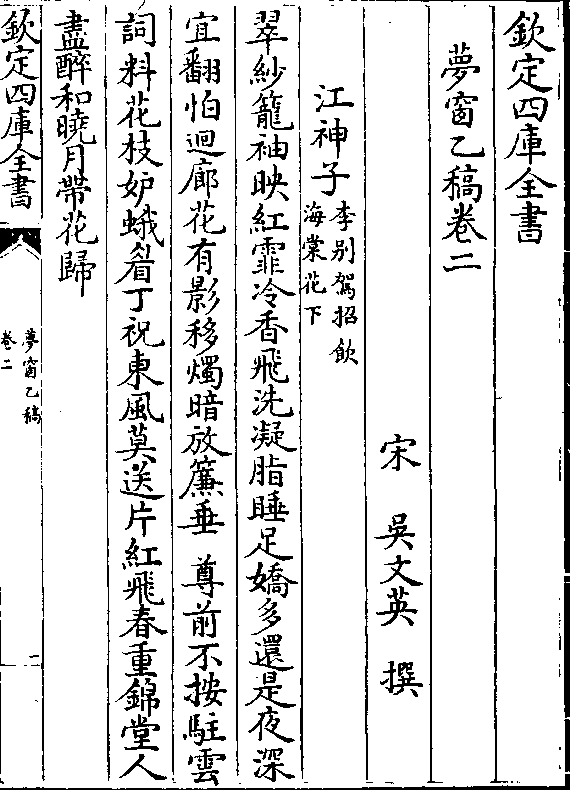 欽定四庫全書
夢窗乙稿卷二
宋 吳文英 撰
江神子 李别駕招飲
海棠花下
翠紗籠袖映紅霏冷香飛洗凝脂睡足嬌多還是夜深
宜翻怕迴廊花有影移燭暗放簾垂 尊前不按駐雲
詞料花枝妒蛾眉丁祝東風莫送片紅飛春重錦堂人
盡醉和曉月帶花歸
欽定四庫全書
夢窗乙稿
卷二
二